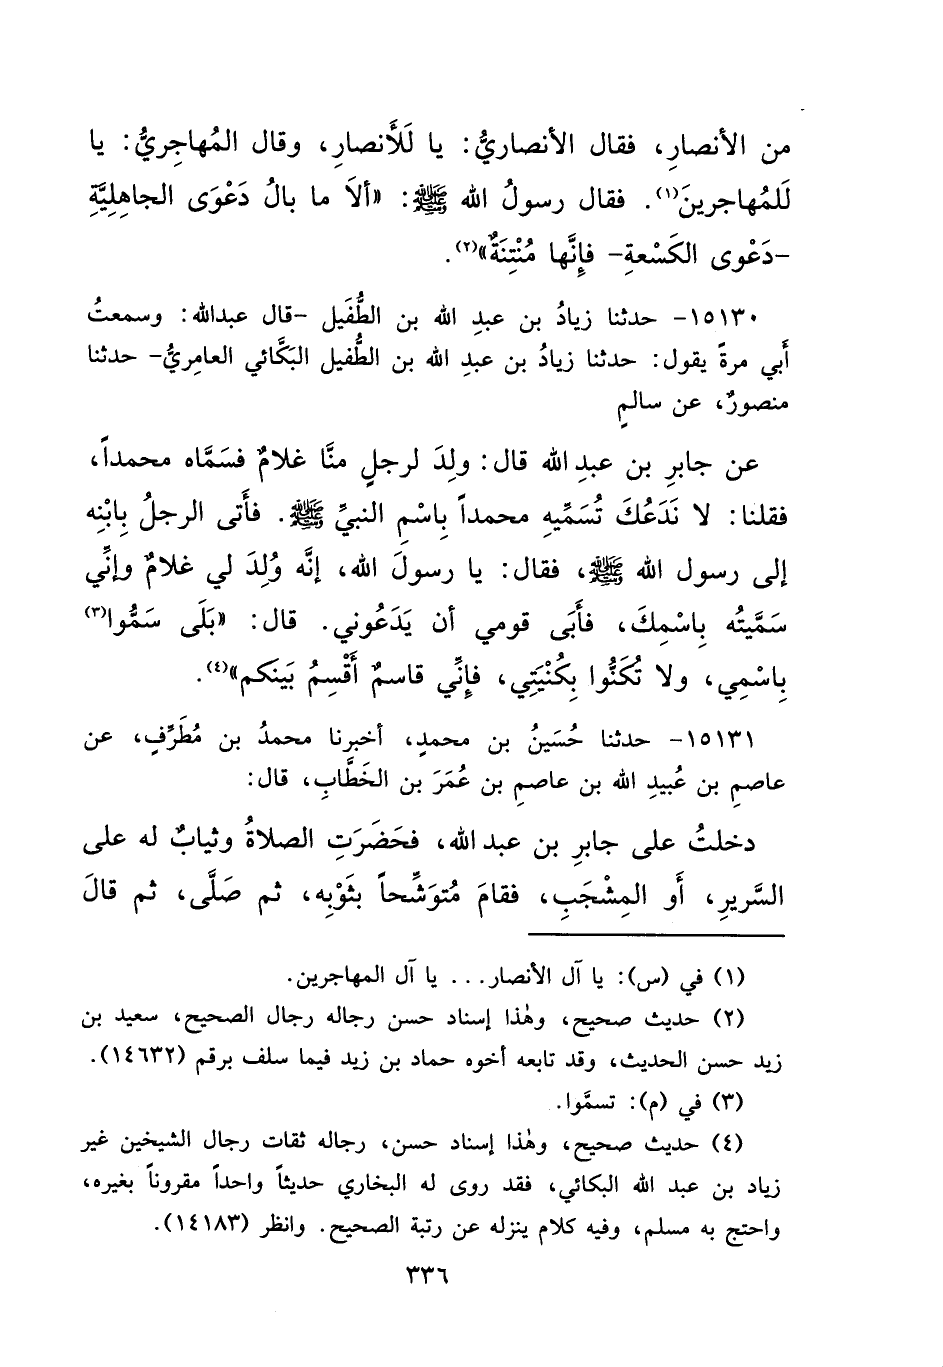 من الأنصارِ، فقال الأنصاريُّ: يا لَلأَنصارِ، وقال المُهاجِريُّ: يا
لَلمُهاجرينَ(١). فقال رسولُ الله ﷺ: «ألاَ ما بالُ دَعْوَى الجاهِلِيَّةِ
-دَعْوى الكَسْعةِ- فإنَّها مُنْتِنَةٌ»(٢).
١٥١٣٠- حدثنا زيادُ بن عبدِ الله بن الطُّفَيل -قال عبدالله: وسمعتُ
أَبي مرةً يقول: حدثنا زيادُ بن عبدِ الله بن الطُّفيل البَكَّائي العامريُّ- حدثنا
منصورٌ، عن سالمٍ
عن جابرِ بن عبدِ الله قال: ولِدَ لرجلٍ منَّا غلامٌ فسَمَّاه محمداً،
فقلنا: لا نَدَعُكَ تُسَمِّيهِ محمداً بِاسْمِ النبيِّ ﷺ. فأَتى الرجلُ بِابْنِه
إلى رسول الله ﷺ، فقال: يا رسولَ الله، إنَّه وُلِدَ لي غلامٌ وإنِّي
سَمَّيتُه بِاسْمِكَ، فأَبَى قومي أن يَدَعُوني. قال: «بَلَى سَمُّوا(٣)
بِاسْمِي، ولا تُكَنُّوا بِكُنْيَتِي، فإنِّي قاسمٌ أَقْسِمُ بَينَكم»(٤).
١٥١٣١- حدثنا حُسَينُ بن محمدٍ، أخبرنا محمدُ بن مُطَرِّفٍ، عن
عاصمِ بن عُبيدِ الله بن عاصمِ بن عُمَرَ بن الخَطَّابِ، قال:
دخلتُ على جابرِ بن عبد الله، فحَضَرَتِ الصلاةُ وثيابٌ له على
السَّريرِ، أَو المِشْجَبِ، فقامَ مُتوَشِّحاً بثَوْبِه، ثم صَلَّى، ثم قالَ
(١) في (س): يا آل الأنصار... يا آل المهاجرين.
(٢) حديث صحيح، وهٰذا إسناد حسن رجاله رجال الصحيح، سعيد بن
زيد حسن الحديث، وقد تابعه أخوه حماد بن زيد فيما سلف برقم (١٤٦٣٢).
(٣) في (م): تسمَّوا.
(٤) حديث صحيح، وهٰذا إسناد حسن، رجاله ثقات رجال الشيخين غير
زياد بن عبد الله البكائي، فقد روى له البخاري حديثاً واحداً مقروناً بغيره،
واحتج به مسلم، وفيه كلام ينزله عن رتبة الصحيح. وانظر (١٤١٨٣).
٣٣٦